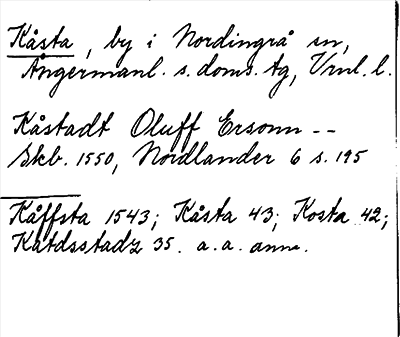 Kåsta, by i Nordingrå sn,
Ångermanl. s. doms. tg, Vrnl. l.
Kåstadt Oluff Ersonn --
Skb. 1550, Nordlander 6 s. 195
Kåffsta 1543; Kåsta 43; Kosta 42;
Katdsstadz 35. a. a. anm.